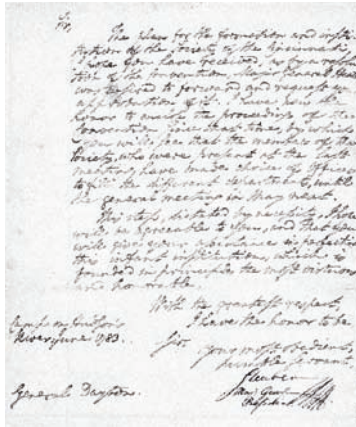 Sir,
The plan for the formation and insti-
tution of the Society of the Cincinnati,
I hope you have received, as by a resolu-
tion of the convention, Major General
was desired to forward and request your
approbation of it. I have now the
honor to enclose the proceedings of the
Convention since that time, by which
you will see that the members of the
Society, who were present at the last
meeting, have made choice of Officers
to fill the different departments, until
the general meeting in May next.
This step, dictated by necessity, I hope
will be agreeable to you, and that you
will give your assistance in perfecting
this infant institution, which is
founded in principles the most virtuous
and honorable.
With the greatest respect,
I have the honor to be
Sir,
your most obedient,
humble servant,
Steuben
Maj. General
President
Camp on Hudson's
River, June 1783.
General Dayton.